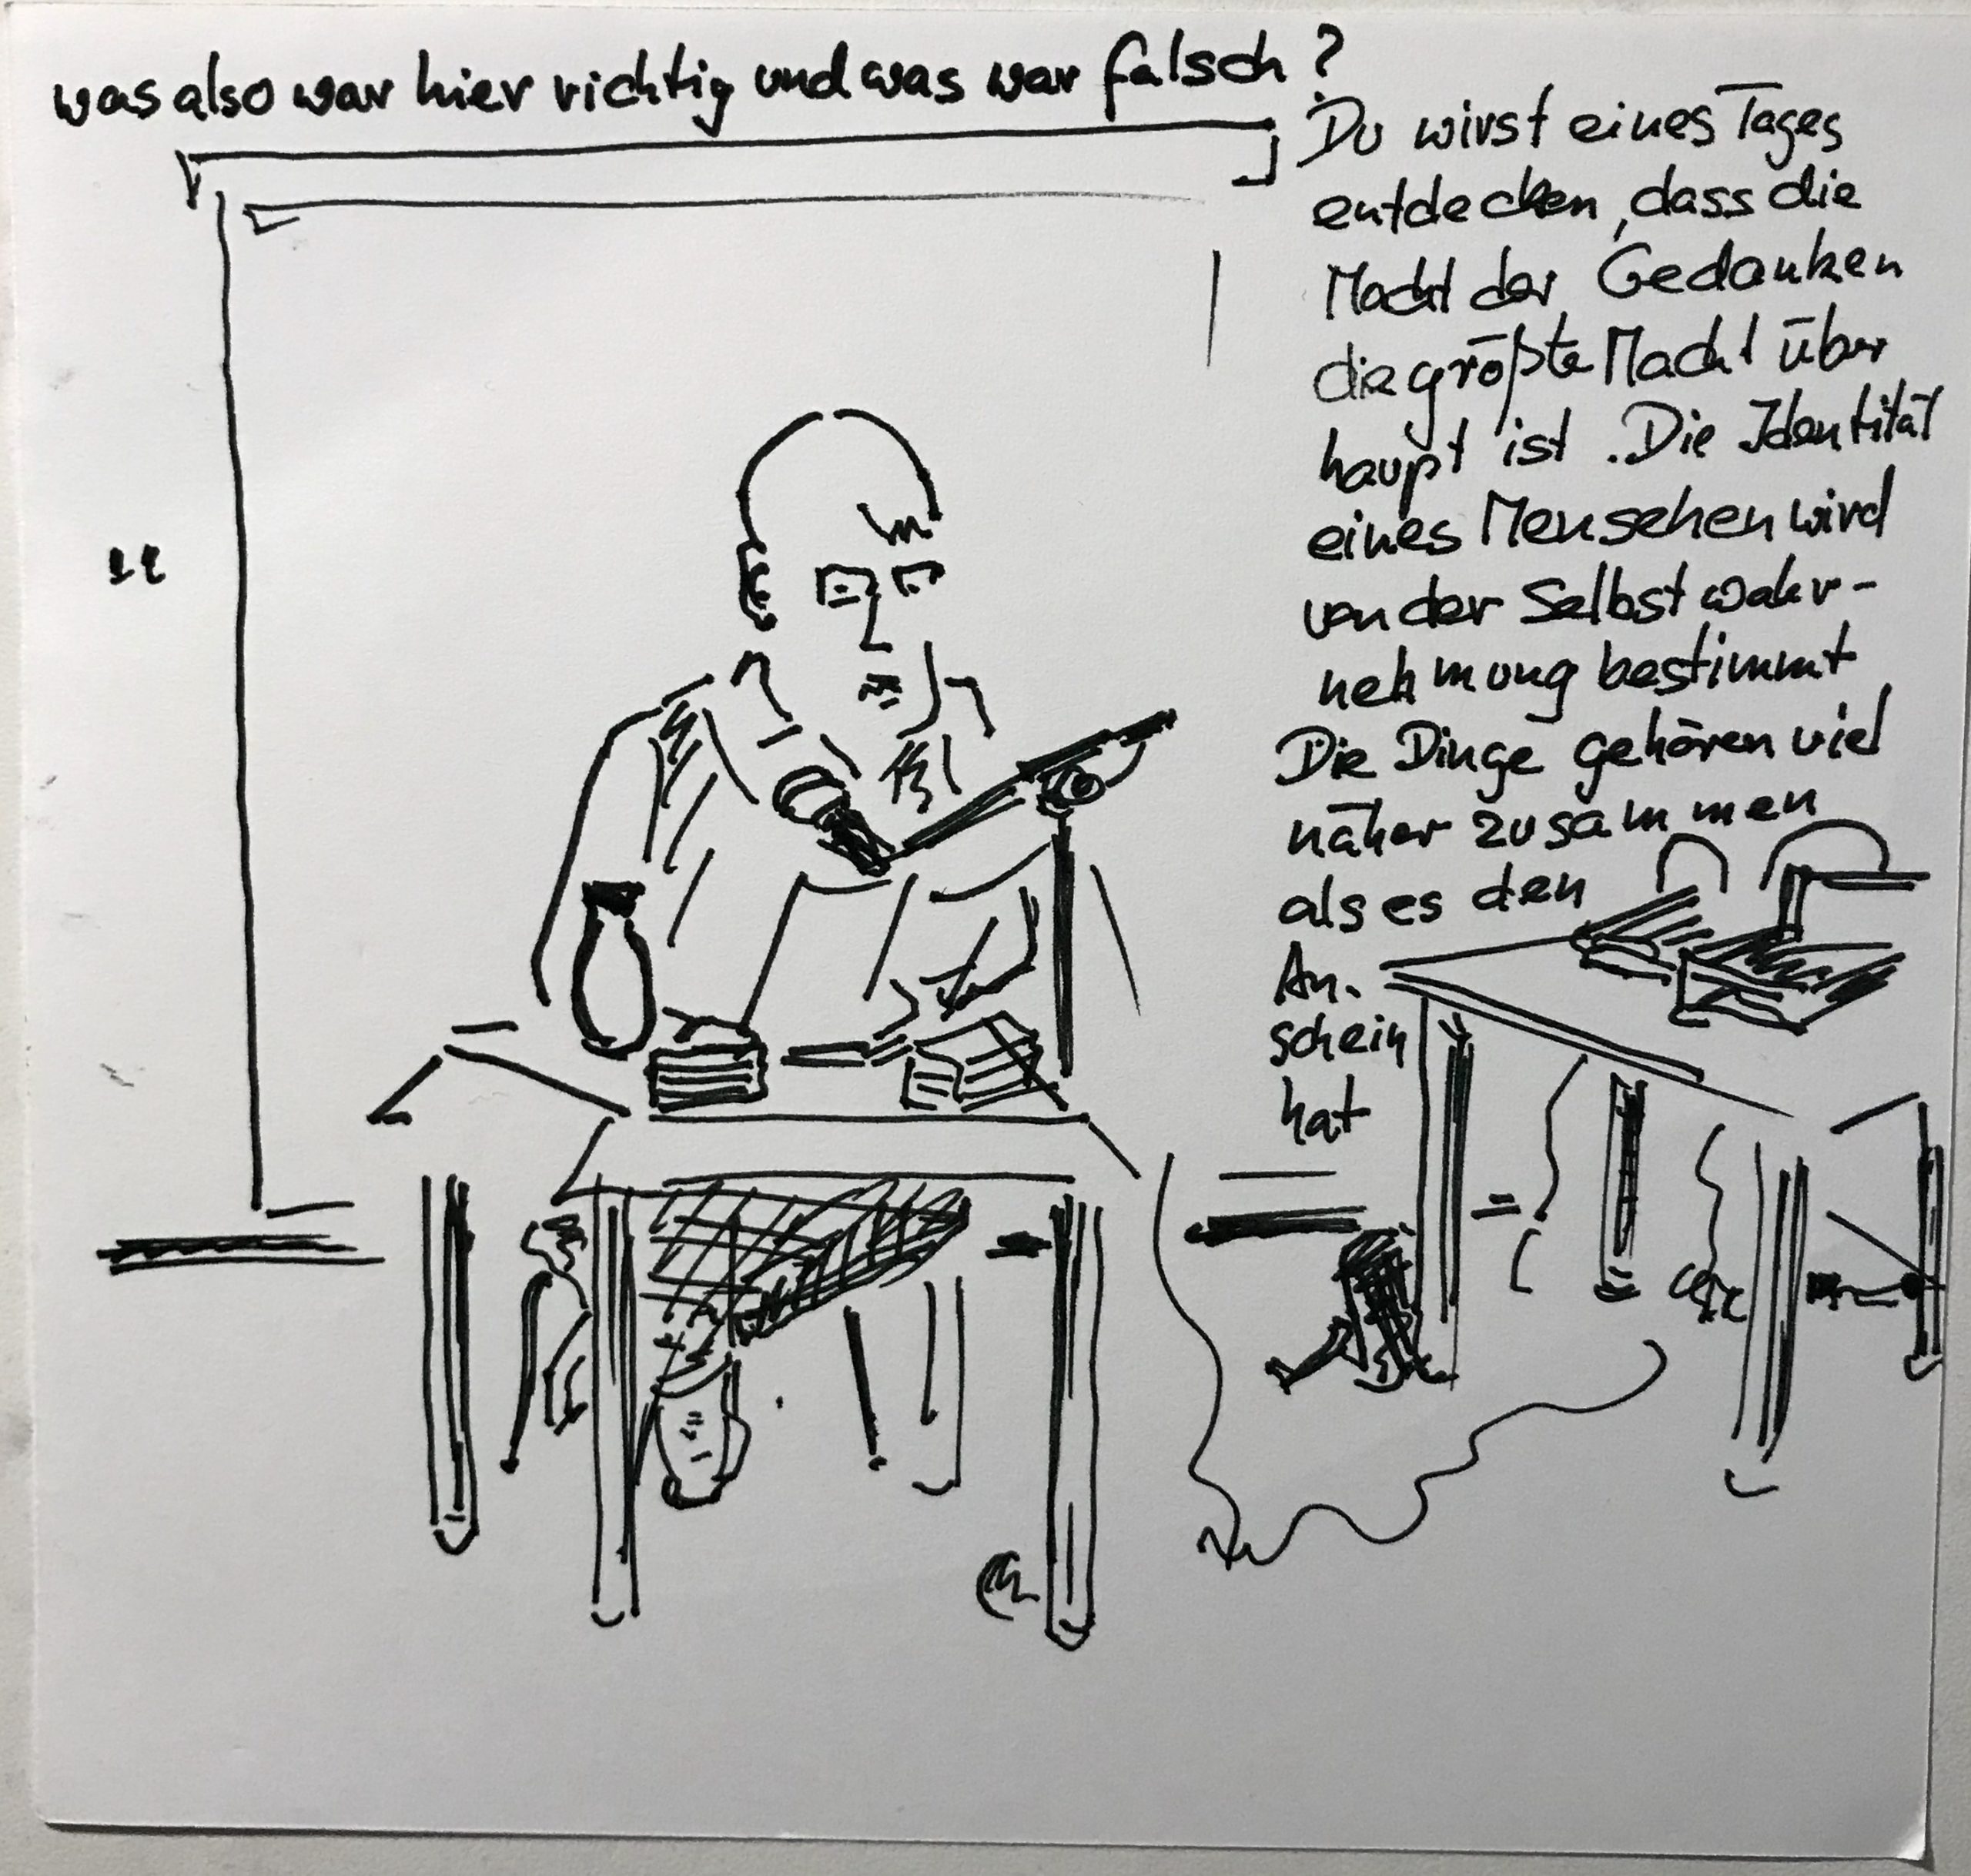 was also war hier richtig und was war falsch ?
Du wirst eines Tages
entdecken, dass die
Macht der Gedanken
die größte Macht über
haupt ist. Die Identität
eines Menschen wird
von der Selbstwahr-
nehmung bestimmt
Die Dinge gehören viel
näher zusammen
als es den
An-
schein
hat